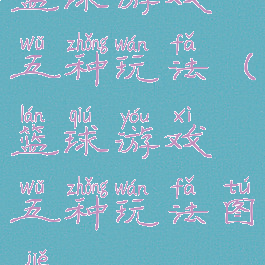 篮球游戏
wǔ zhǒng wán fǎ
五种玩法（
lán qiú yóu xì
篮球游戏
wǔ zhǒng wán fǎ tú
五种玩法图
jiě